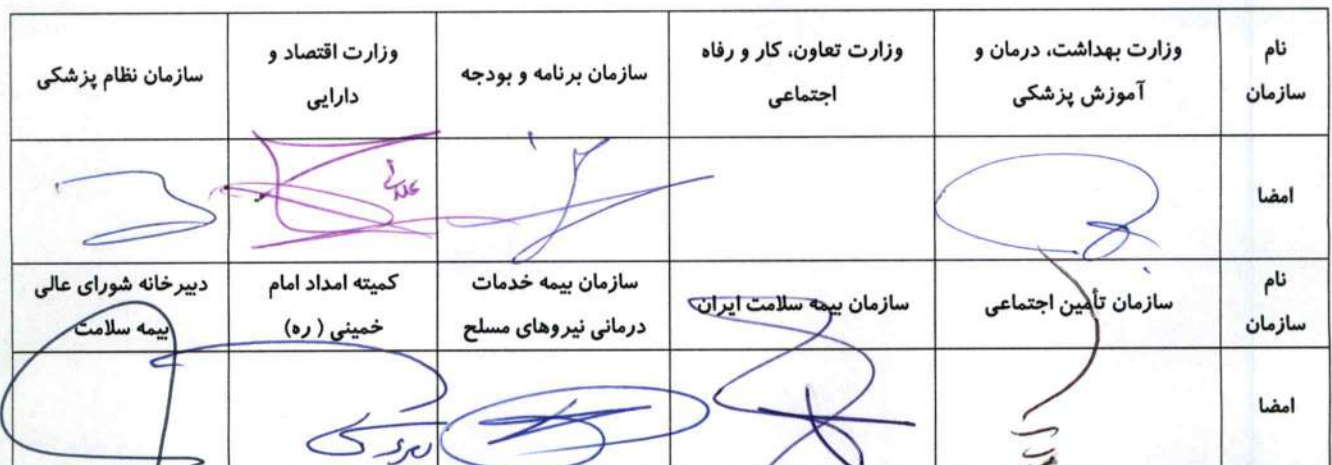 نام سازمان
وزارت بهداشت، درمان و آموزش پزشکی
وزارت تعاون، کار و رفاه اجتماعی
سازمان برنامه و بودجه
وزارت اقتصاد و دارایی
سازمان نظام پزشکی
امضا
نام سازمان
سازمان تأمین اجتماعی
سازمان بیمه سلامت ایران
سازمان بیمه خدمات درمانی نیروهای مسلح
کمیته امداد امام خمینی ( ره)
دبیرخانه شورای عالی بیمه سلامت
امضا